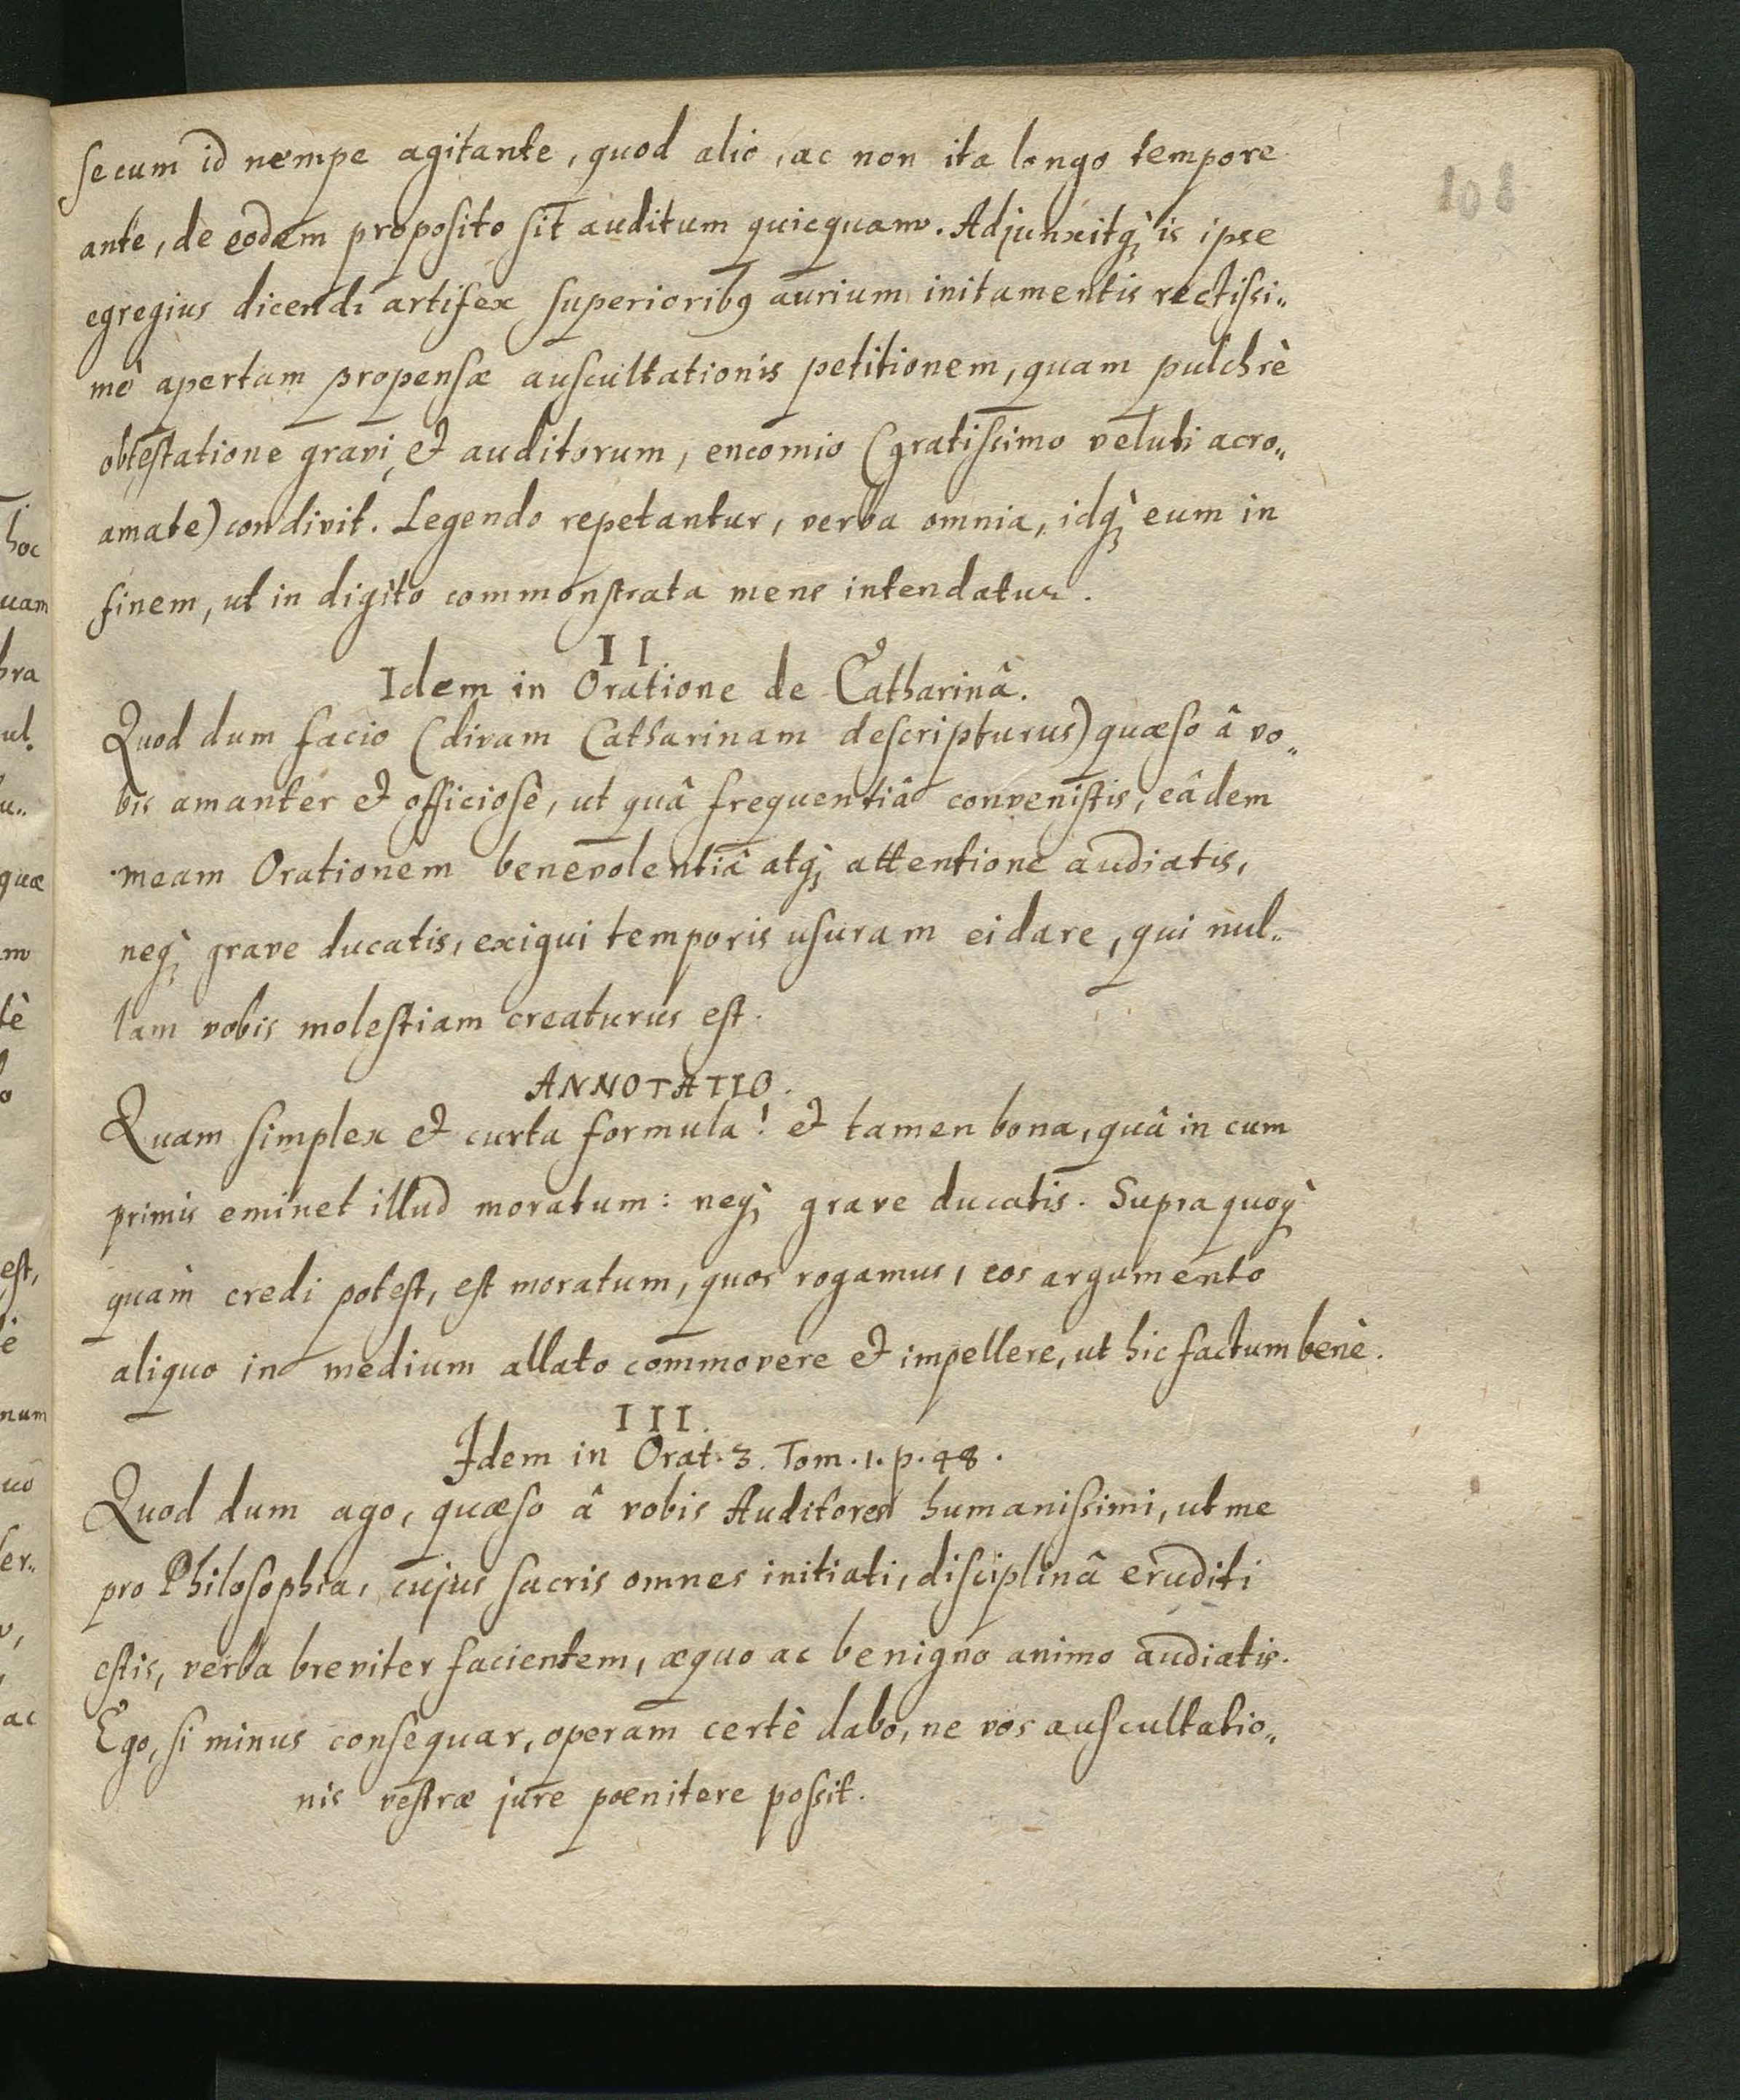 108
secum id nempe agitante, quod alio, ac non ita longo tempore
ante, de eodem proposito sit auditum quicquam. Adjunxitq; is ipse
egregius dicendi artifex superioribꝰ aurium initamentis rectissi„
mè apertam propensæ auscultationis petitionem, quam pulchrè
obtestatione gravi, et auditorum, encomio (gratissimo veluti acro„
amate) condivit. Legendo repetantur, verba omnia, idq; eum in
finem, ut in digito commonstrata mens intendatur.
II
Idem in Oratione de Catharinâ.
Quod dum facio (divam Catharinam descripturus) quæso â vo„
bis amanter et officiosè, ut quâ frequentiâ convenistis, eâdem
meam Orationem benevolentiâ atq; attentione audiatis,
neq; grave ducatis, exigui temporis usuram ei dare, qui nul„
lam vobis molestiam creaturus est.
ANNOTATIO.
Quam simplex et curta formula! et tamen bona, quâ in cum
primis eminet illud moratum: neq; grave ducatis. Supra quoq;
quàm credi potest, est moratum, quos rogamus, eos argumento
aliquo in medium allato commovere et impellere, ut hic factum benè.
III.
Idem in Orat. 3. Tom. 1. p. 48.
Quod dum ago, quæso â vobis Auditores humanissimi, ut me
pro Philosophia, cujus sacris omnes initiati, disciplinâ eruditi
estis, verba breviter facientem, æquo ac benigno animo audiatis.
Ego, si minus consequar, operam certè dabo, ne vos auscultatio„
nis vestræ jure pœnitere possit.